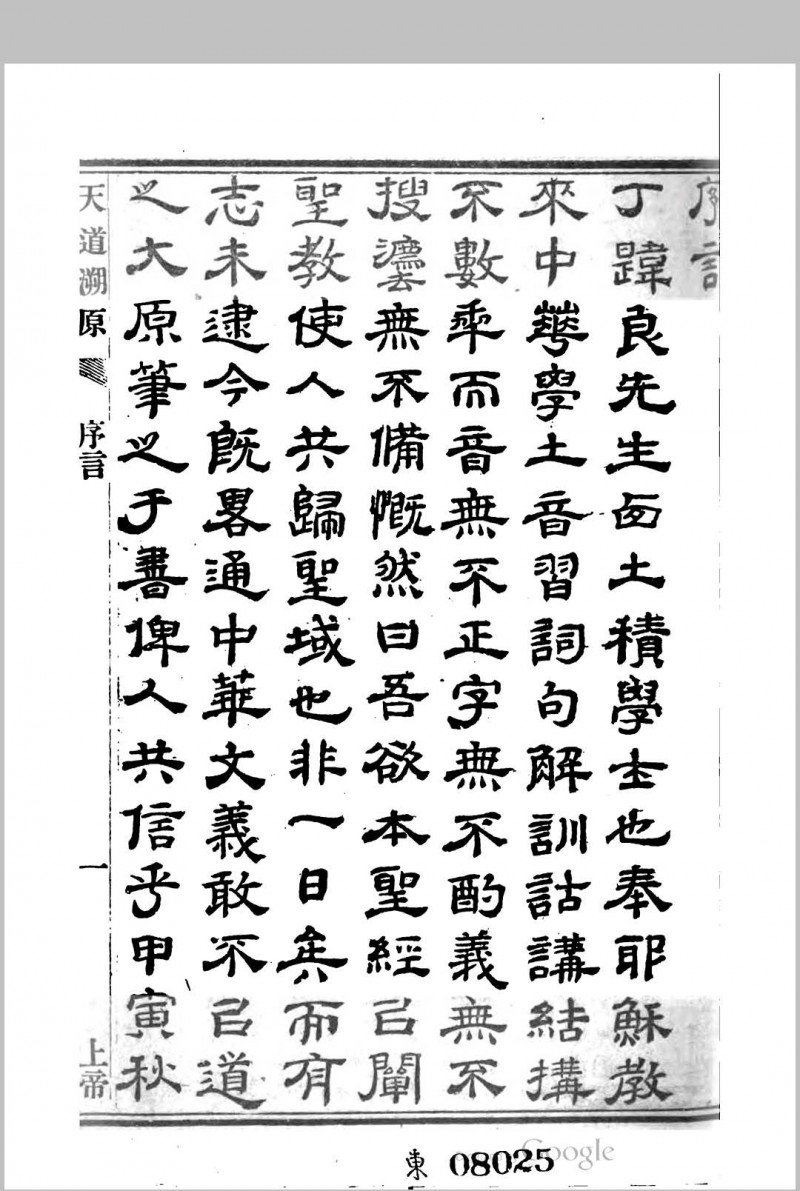 序言
丁韙良先生西土積學士也奉耶穌教
來中華學土音習詞句解訓詁講結搆
不數年而音無不正字無不酌義無不
搜灋無不備慨然曰吾欲本聖經㠯闡
聖教使人共歸聖域也非一日矣而有
志未逮今既畧通中華文義敢不㠯道
之大原筆之于書俾人共信乎甲寅秋
天道溯原 序言 一 上帝
東 08025
Google